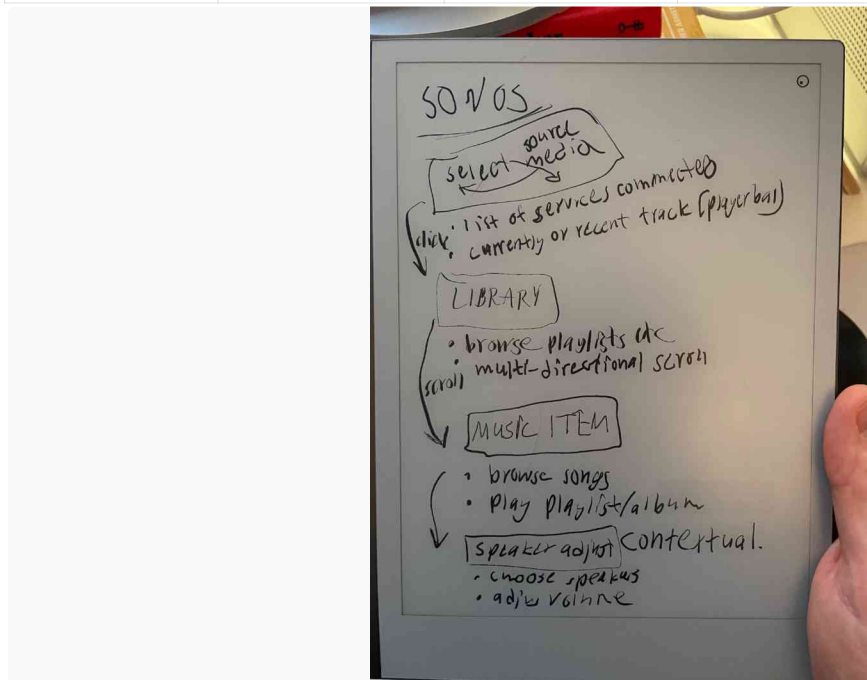 SONOS
select source media
• list of services connected
click • currently or recent track (player bar)
LIBRARY
• browse playlists etc
• multi-directional scroll
scroll
MUSIC ITEM
• browse songs
• Play playlist/album
speaker adjust contextual.
• choose speakers
• adjus volume